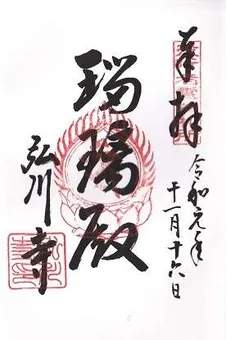 奉拝
令和元年
十一月十六日
瑠璃殿
弘川寺